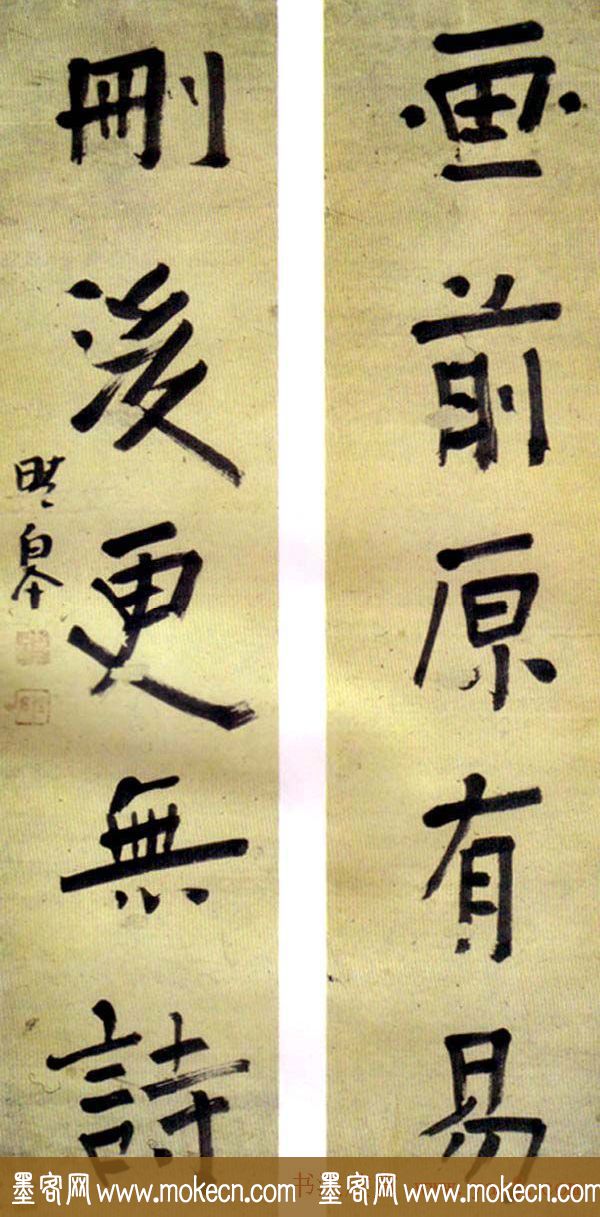 画前原有易
刪後更無詩
墨客网 www.mokecn.com 墨客网 www.mokecn.com